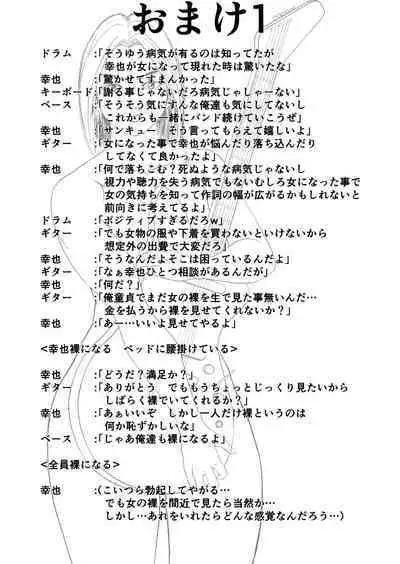 おまけ1
ドラム　:「そうゆう病気が有るのは知ってたが
幸也が女になって現れた時は驚いたな」
幸也　:「驚かせてすまんかった」
キーボード:「謝る事じゃないだろ病気じゃしゃーない」
ベース　:「そうそう気にすんな俺達も気にしてないし
これからも一緒にバンド続けていこうぜ」
幸也　:「サンキュー　そう言ってもらえて嬉しいよ」
ギター　:「女になった事で幸也が悩んだり落ち込んだり
してなくて良かったよ」
幸也　:「何で落ちこむ？死ぬような病気じゃないし
視力や聴力を失う病気でもないむしろ女になった事で
女の気持ちを知って作詞の幅が広がるかもしれないと
前向きに考えてるよ」
ドラム　:「ポジティブすぎるだろw」
ギター　:「でも女物の服や下着を買わないといけないから
想定外の出費で大変だろ」
幸也　:「そうなんだよそこは困っているんだよ」
ギター　:「なぁ幸也ひとつ相談があるんだが」
幸也　:「何だ？」
ギター　:「俺童貞でまだ女の裸を生で見た事無いんだ…
金を払うから裸を見せてくれないか？」
幸也　:「あー…いいよ見せてやるよ」
<幸也裸になる　ベッドに腰掛けている>
幸也　:「どうだ？満足か？」
ギター　:「ありがとう　でももうちょっとじっくり見たいから
しばらく裸でいてくれるか？」
幸也　:「あぁいいぞ　しかし一人だけ裸というのは
何か恥ずかしいな」
ベース　:「じゃあ俺達も裸になるよ」
<全員裸になる>
幸也　:(こいつら勃起してやがる…
でも女の裸を間近で見たら当然か…
しかし…あれをいれたらどんな感覚なんだろう…)